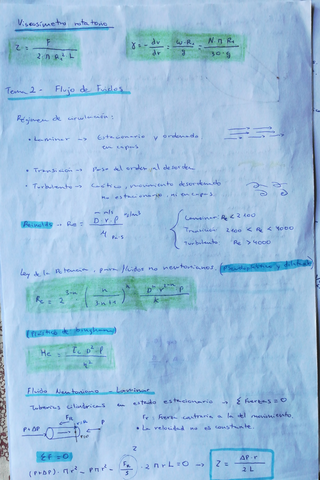 Viscosimetro rotatorio
τ = F / 2·π·R₁²·L
γ = -dv/dr = ω·R₁/y = N·π·R₁/30·y
Tema 2 - Flujo de Fluidos
Régimen de circulación:
• Laminar → Estacionario y ordenado
en capas
• Transición → Paso del orden al desorden
• Turbulento → Caótico, movimiento desordenado
no estacionario, ni en capas.
Reynolds → Re = D·v·ρ / μ
m m/s kg/m³
Pa·s
Laminar Re < 2100
Transición 2100 < Re < 4000
Turbulento Re > 4000
Ley de la Potencia, para fluidos no newtonianos.
Plásticos de Bingham
Fluido Newtoniano - Laminar
Tuberias cilíndricas en estado estacionario → Σ Fuerzas = 0
Fr: Fuerza contraria a la del movimiento
• La velocidad no es constante
P+ΔP
P
ΣF = 0
(P+ΔP)·πr² - Pπr² - FR/S · 2πrL = 0 → τ = ΔP·r / 2L